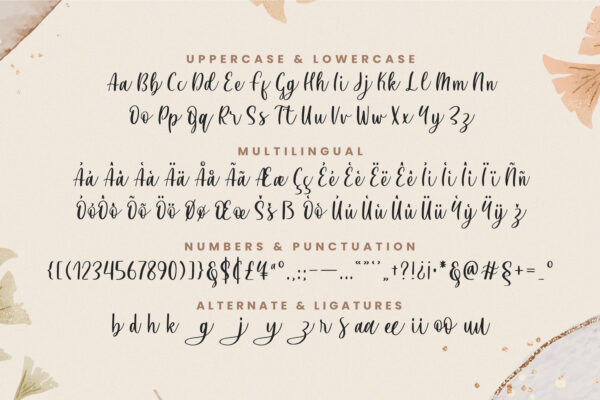 UPPERCASE & LOWERCASE
Aa Bb Cc Dd Ee Ff Gg Hh Ii Jj Kk Ll Mm Nn
Oo Pp Qq Rr Ss Tt Uu Vv Ww Xx Yy Zz
MULTILINGUAL
Áá Ââ Àà Ää Åå Ãã Ææ Çç Éé Èè Ëë Êê Íí Ìì Îî Ïï Ññ
ÓóÔô Õõ Öö Øø Œœ Šš ß Òò Úú Ùù Ûû Üü Ýý Ÿÿ ž
NUMBERS & PUNCTUATION
{[(1234567890)]}&$₵£¥ªº.,:;-–—…“”‘’„†?!¿¡•*&@#§+=_º
ALTERNATE & LIGATURES
b d h k g j y z r s aa ee ii oo uu